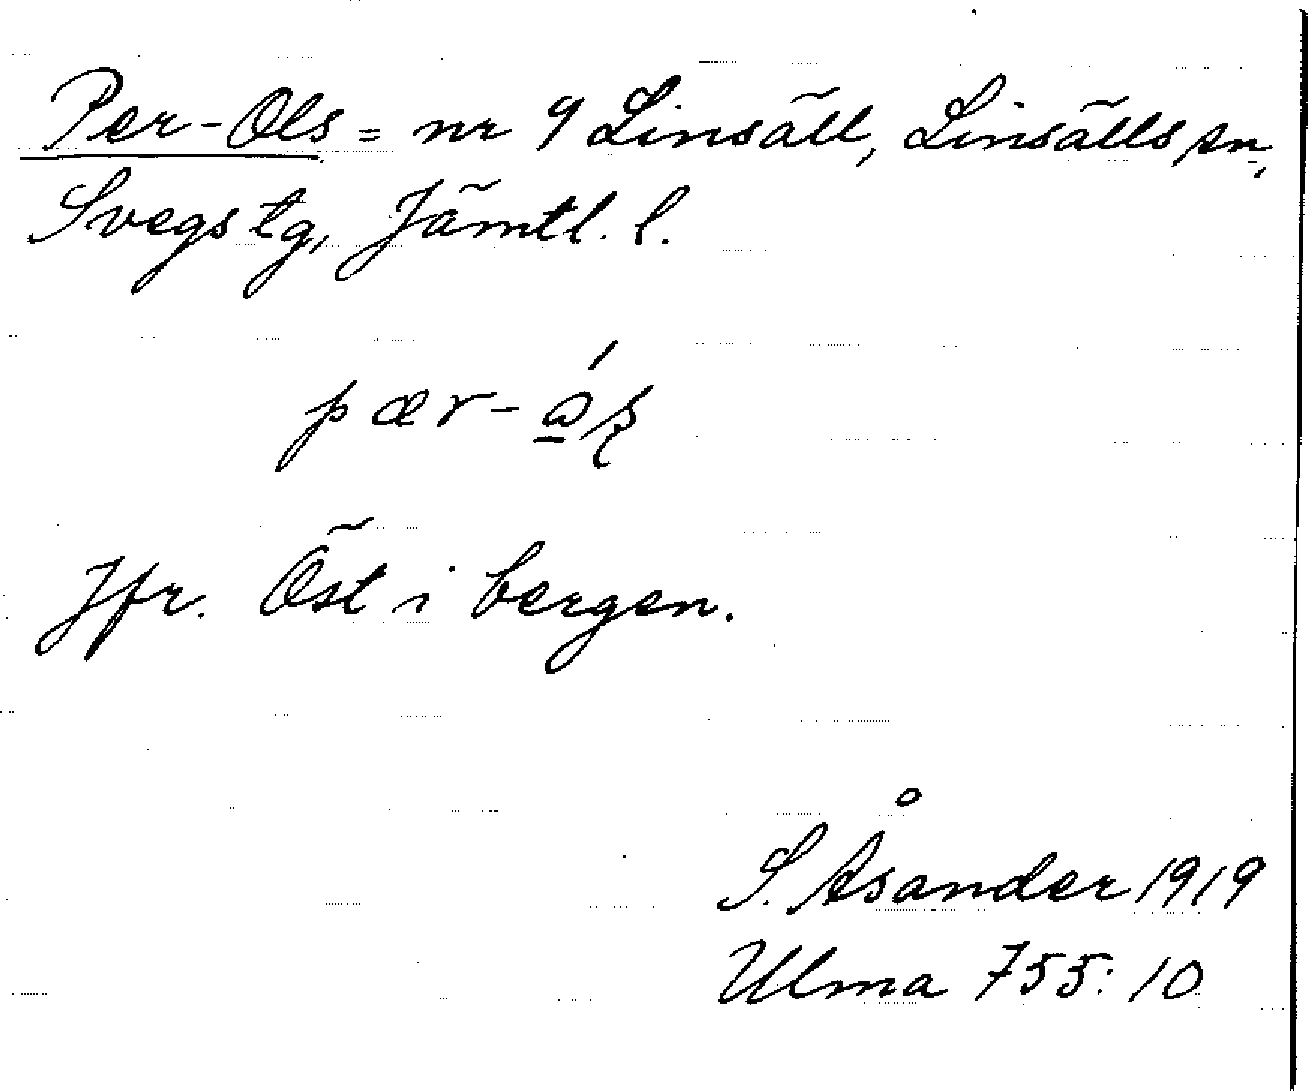 Per-Ols = nr 9 Linsäll, Linsälls sn,
Svegs tg, Jämtl. l.
pær-
Jfr. Öst i bergen.
S. Åsander 1919
Ulma 755:10